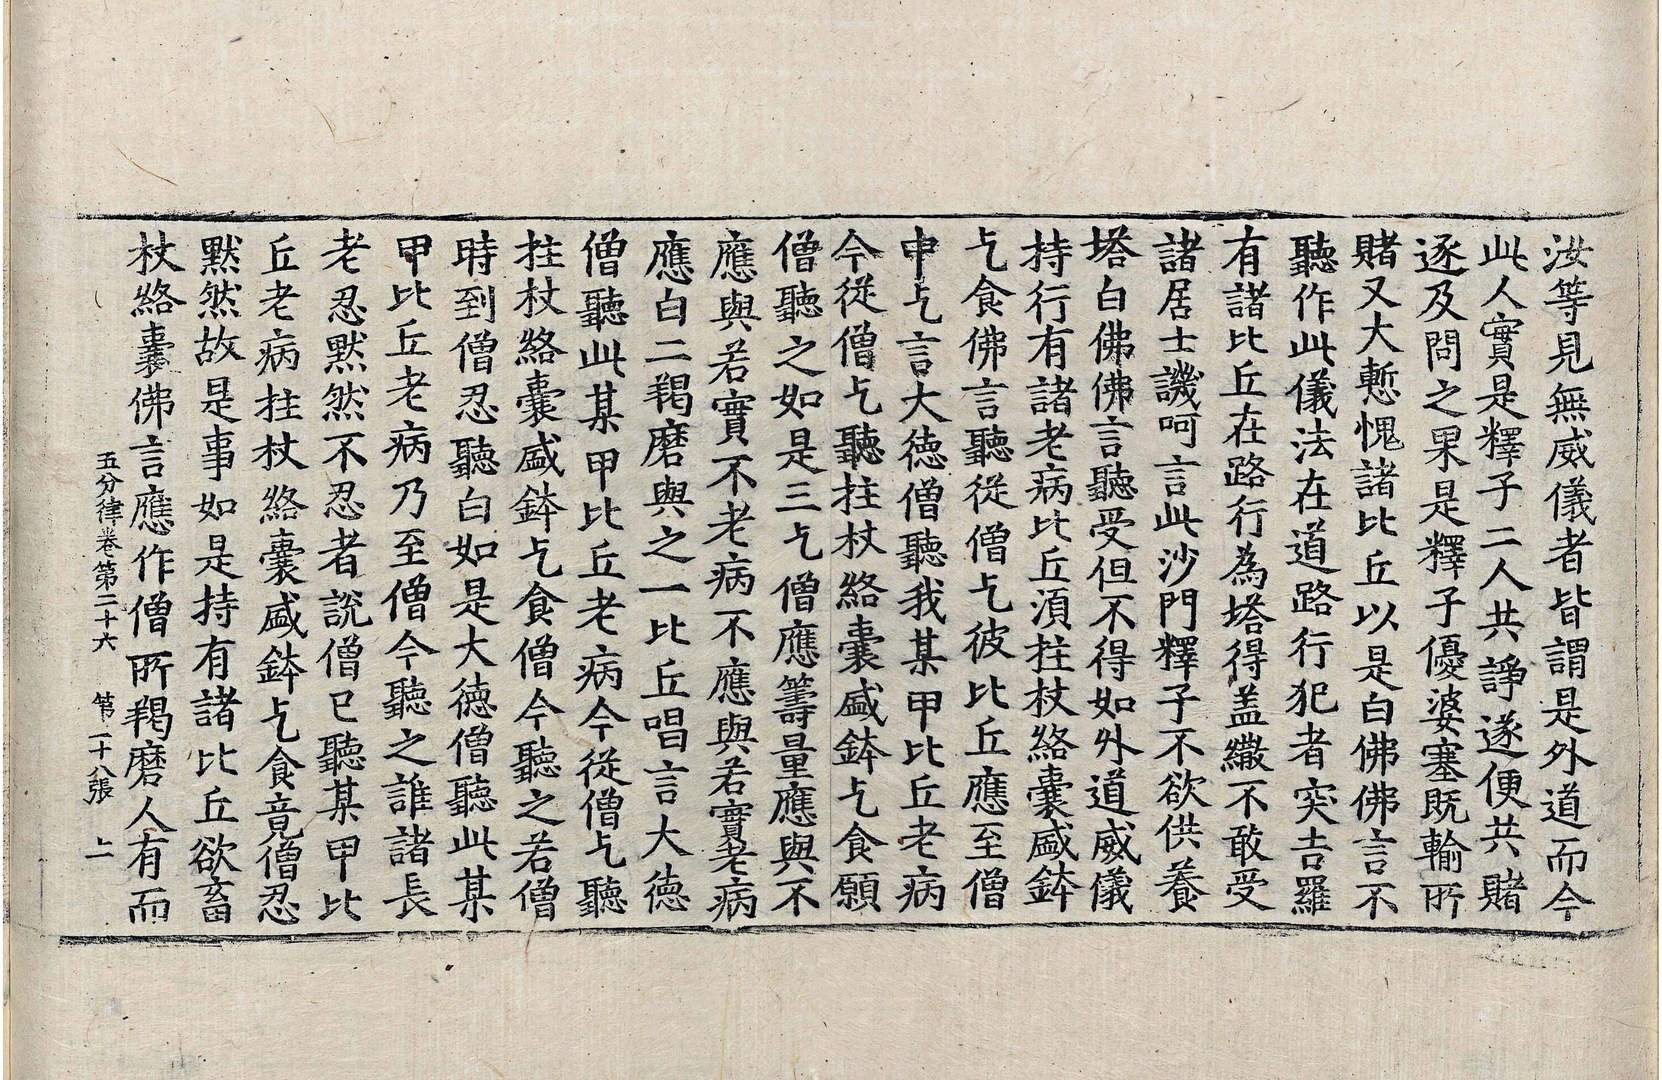 汝等見無威儀者皆謂是外道而今
此人實是釋子二人共諍遂便共賭
逐及問之果是釋子優婆塞既輸所
賭又大慙愧諸比丘以是白佛佛言不
聽作此儀法在道路行犯者突吉羅
有諸比丘在路行為塔得盖繖不敢受
諸居士譏呵言此沙門釋子不欲供養
塔白佛佛言聽受但不得如外道威儀
持行有諸老病比丘湏拄杖絡囊盛鉢
乞食佛言聽從僧乞彼比丘應至僧
中乞言大德僧聽我某甲比丘老病
今從僧乞聽拄杖絡囊盛鉢乞食願
僧聽之如是三乞僧應籌量應與不
應與若實不老病不應與若實老病
應白二羯磨與之一比丘唱言大德
僧聽此某甲比丘老病今從僧乞聽
拄杖絡囊盛鉢乞食僧今聽之若僧
時到僧忍聽白如是大德僧聽此某
甲比丘老病乃至僧今聽之誰諸長
老忍默然不忍者說僧已聽某甲比
丘老病拄杖絡囊盛鉢乞食竟僧忍
默然故是事如是持有諸比丘欲畜
杖絡囊佛言應作僧所羯磨人有而
五分律卷第二十六 第二十八張 上